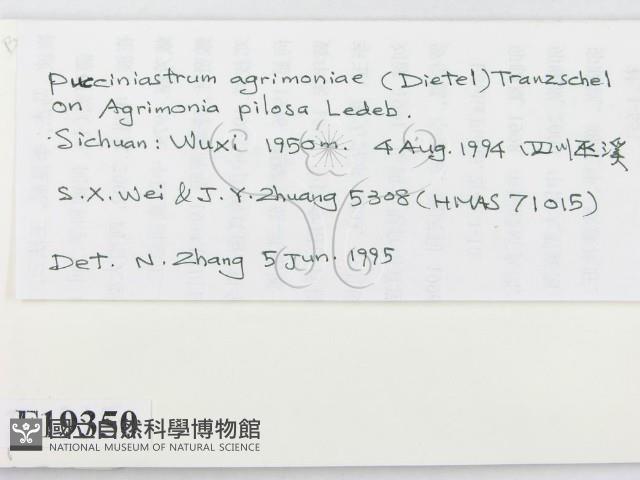 Pucciniastrum agrimoniae (Dietel) Tranzschel
on Agrimonia pilosa Ledeb.
Sichuan: Wuxi 1950m. 4 Aug. 1994 四川巫溪
S.X. Wei & J.Y. Zhuang 5308 (HMAS 71015)
Det. N. Zhang 5 Jun. 1995
F19350
國立自然科學博物館
NATIONAL MUSEUM OF NATURAL SCIENCE